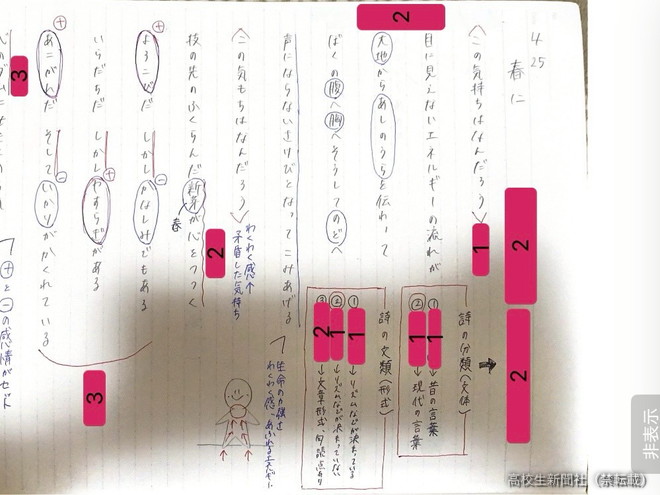 4/25
春に
〈この気持ちはなんだろう〉
目に見えないエネルギーの流れが
大地からあしのうらを伝わって
ぼくの腹へ胸へそうしてのどへ
声にならないさけびとなってこみあげる
〈この気もちはなんだろう〉
枝の先のふくらんだ新芽が心をつつく
春
よろこびだ しかしかなしみでもある
いらだちだ しかしやすらぎがある
あこがれだ そしていかりがかくれている
心のダムにせきとめられ
⊕
⊖
⊕
⊕
⊖
わくわく感↑
矛盾した気持ち
詩の分類(文体)
① → 昔の言葉
② → 現代の言葉
詩の文類(形式)
① → リズムなどが決まっている
② → リズムなどが決まっていない
③ → 文章形式 句読点あり
生命の力強さ
わくわく感、あふれるエネルギー
⊕と⊖の感情がセット
1
2
2
2
1
1
1
1
2
2
3
3
非表示
高校生新聞社(禁転載)